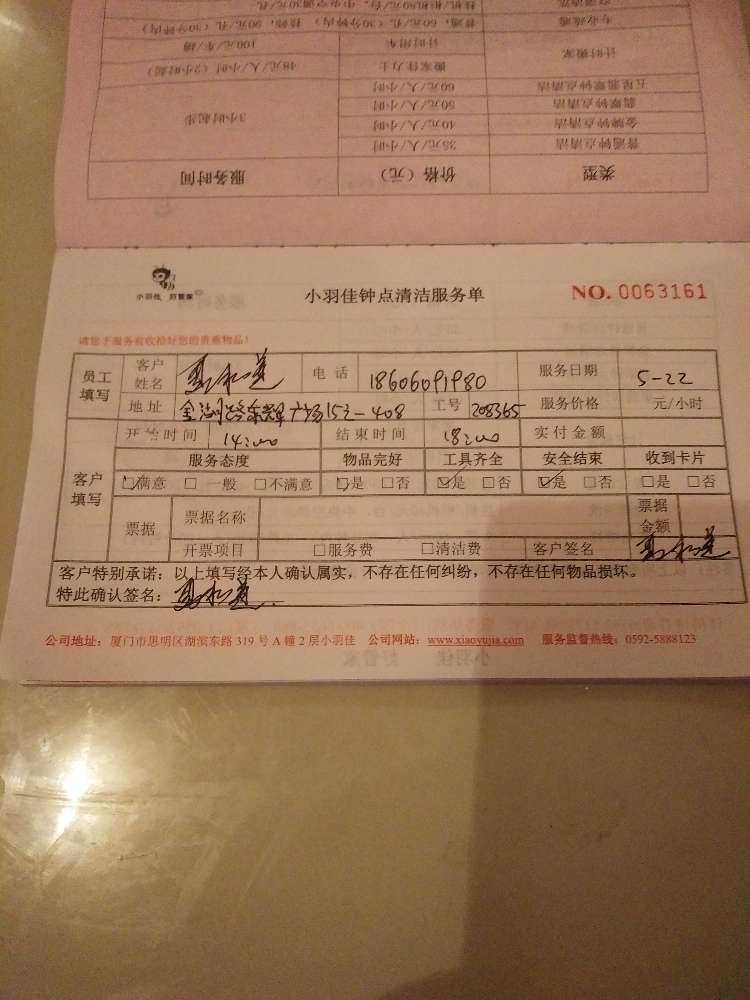 专业疏通 普通，60元/孔（30分钟内） 挂蜡，90元/孔（30分钟内）
计时搬家 计时用车 100元/车/趟
搬家佳力士 48元/人/小时（2小时起）
五星翡翠钟点清洁 60元/人/小时
翡翠钟点清洁 50元/人/小时
金牌钟点清洁 40元/人/小时 3小时起步
普通钟点清洁 35元/人/小时
类型 价格（元） 服务时间
小羽佳 好管家
小羽佳钟点清洁服务单
NO. 0063161
请您于服务前收拾好您的贵重物品！
员工填写 客户姓名 电话 18606091980 服务日期 5-22
地址 广场15之-408 工号 208365 服务价格 元/小时
开始时间 14:00 结束时间 18:00 实付金额
客户填写 服务态度 物品完好 工具齐全 安全结束 收到卡片
☑满意 □一般 □不满意 ☑是 □否 ☑是 □否 ☑是 □否 □是 □否
票据 票据名称 票据金额
开票项目 □服务费 □清洁费 客户签名
客户特别承诺：以上填写经本人确认属实，不存在任何纠纷，不存在任何物品损坏。
特此确认签名：
公司地址：厦门市思明区湖滨东路 319 号 A 幢 2 层小羽佳 公司网站：www.xiaoyujia.com 服务监督热线：0592-5888123